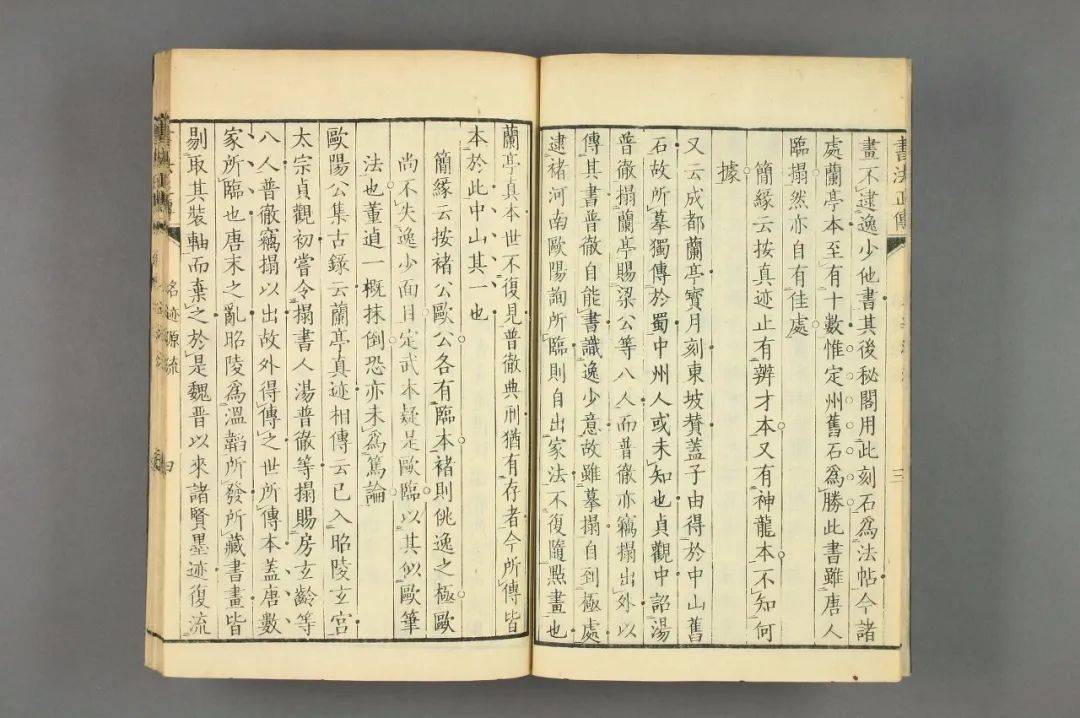 書法正傳
三
畫不逮逸少他書其後秘閣用此刻石爲法帖今諸
處蘭亭本至有十數惟定州舊石爲勝此書雖唐人
臨搨然亦自有佳處
簡緣云按真迹止有辨才本又有神龍本不知何
據
又云成都蘭亭寶月刻東坡贊蓋子由得於中山舊
石故所摹獨傳於蜀中州人或未知也貞觀中詔湯
普徹搨蘭亭賜梁公等八人而普徹亦竊搨出外以
傳其書普徹自能書識逸少意故雖摹搨自到極處
逮褚河南歐陽詢所臨則自出家法不復隨點畫也
蘭亭真本世不復見普徹典刑猶有存者今所傳皆
本於此中山其一也
簡緣云按褚公歐公各有臨本褚則佻逸之極歐
尚不失逸少面目定武本疑是歐臨以其似歐筆
法也董逌一概抹倒恐亦未爲篤論
歐陽公集古錄云蘭亭真迹相傳云已入昭陵玄宮
太宗貞觀初嘗令搨書人湯普徹等搨賜房玄齡等
八人普徹竊搨以出故外得傳之世所傳本蓋唐數
家所臨也唐末之亂昭陵爲溫韜所發所藏書畫皆
剔取其裝軸而棄之於是魏晉以來諸賢墨迹復流
名迹源流
四